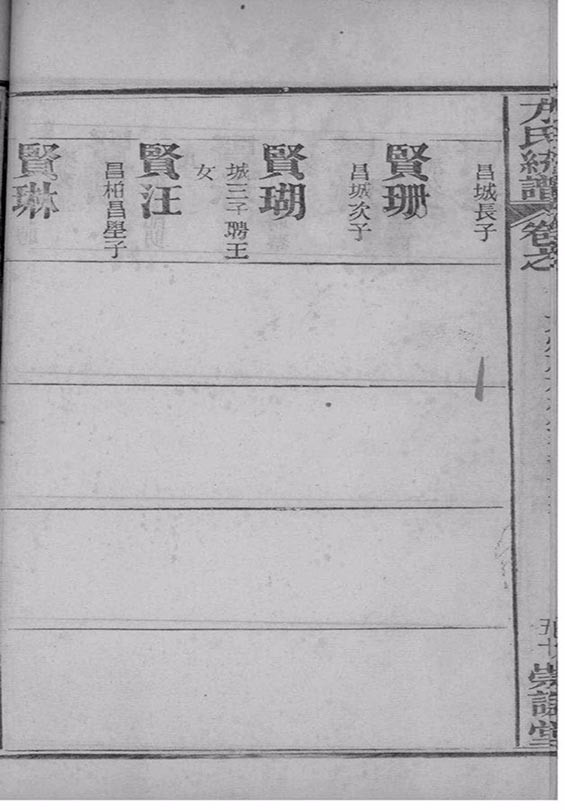 方氏統譜 卷之
五十
崇誼堂
昌城長子
賢珊
昌城次子
賢瑚
城三子聘王
女
賢汪
昌柏昌子
賢琳